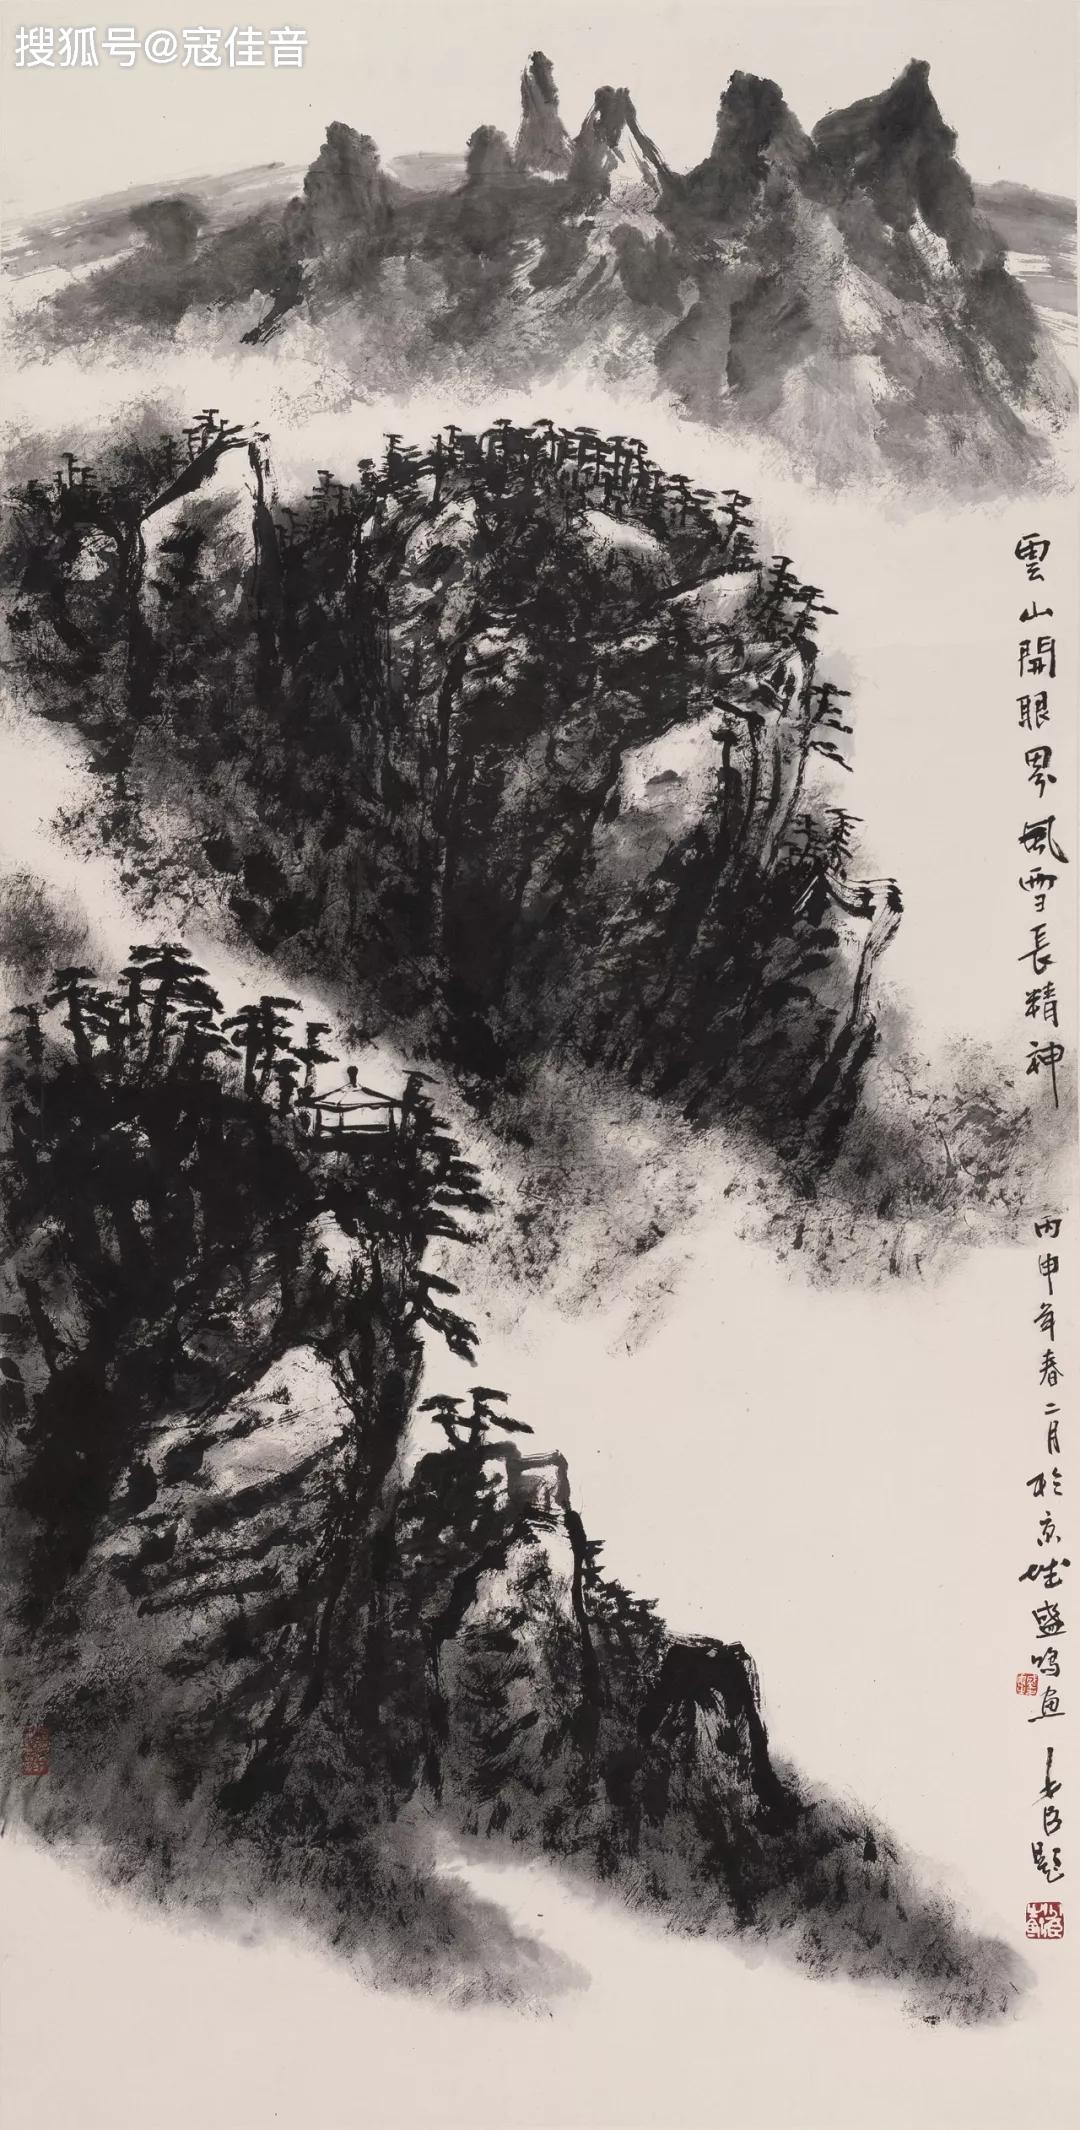 搜狐号@寇佳音
雲山開眼界風雪長精神
丙申年春二月於京城盛鳴畫
長臣題